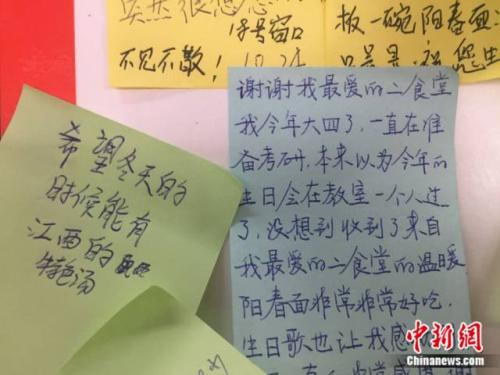 突然很想念
19号窗口
不见不散！10.24
板一碗阳春面
祝您生
希望冬天的
时候能有
江西的
特色汤
谢谢我最爱的二食堂
我今年大四了，一直在准
备考研，本来以为今年的
生日会在教室一个人过
了，没想到收到了来自
我最爱的二食堂的温暖
阳春面非常非常好吃，
生日歌也让我感
中新网
Chinanews.com